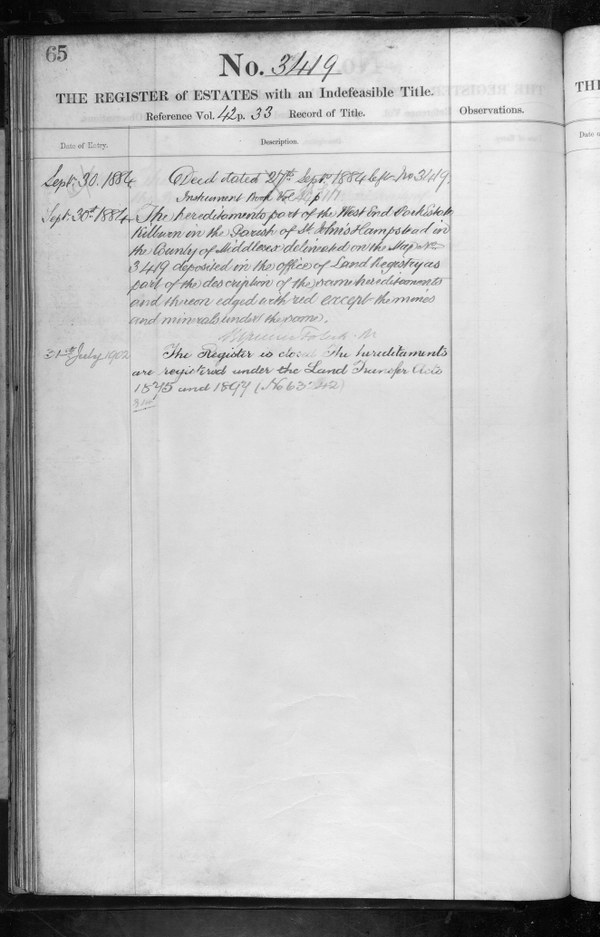 65
No. 3419
THE REGISTER of ESTATES with an Indefeasible Title.
Reference Vol. 42 p. 33 Record of Title.
Observations.
Date of Entry.
Description.
Sept. 30. 1884
Deed dated 27th Septr 1884 left No 3419
Instrument Book Vol p
Sept. 30th 1884
The hereditaments part of the West End Park Estate
Kilburn in the Parish of St. John's Hampstead in
the County of Middlesex delineated on the Map No
3419 deposited in the office of Land Registry as
part of the description of the same hereditaments
and thereon edged with red except the mines
and minerals under the same.
31st July 1902
The Register is closed The hereditaments
are registered under the Land Transfer Acts
1875 and 1897 (No 63
THE
Date o